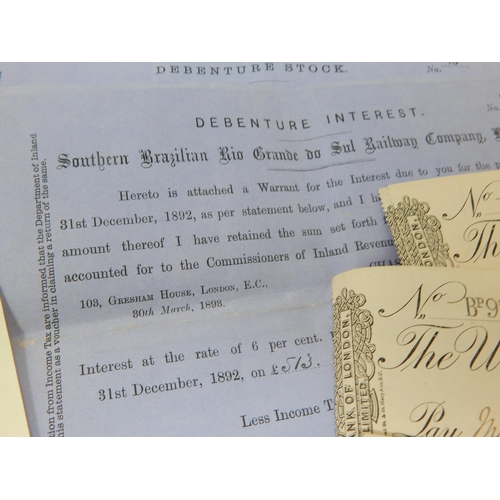 DEBENTURE STOCK.
No.
No.
DEBENTURE INTEREST.
Southern Brazilian Rio Grande do Sul Railway Company,
Hereto is attached a Warrant for the Interest due to you for the
31st December, 1892, as per statement below, and I
amount thereof I have retained the sum set forth
accounted for to the Commissioners of Inland Revenu
CHAS
103, Gresham House, London, E.C.,
30th March, 1893.
Interest at the rate of 6 per cent.
31st December, 1892, on £513.
Less Income T
tion from Income Tax are informed that the Department of Inland
his statement as a voucher in claiming a return of the same.
No
Th
LONDON,
No Bp9
The U
Pay
ANK OF LONDON,
LIMITED.